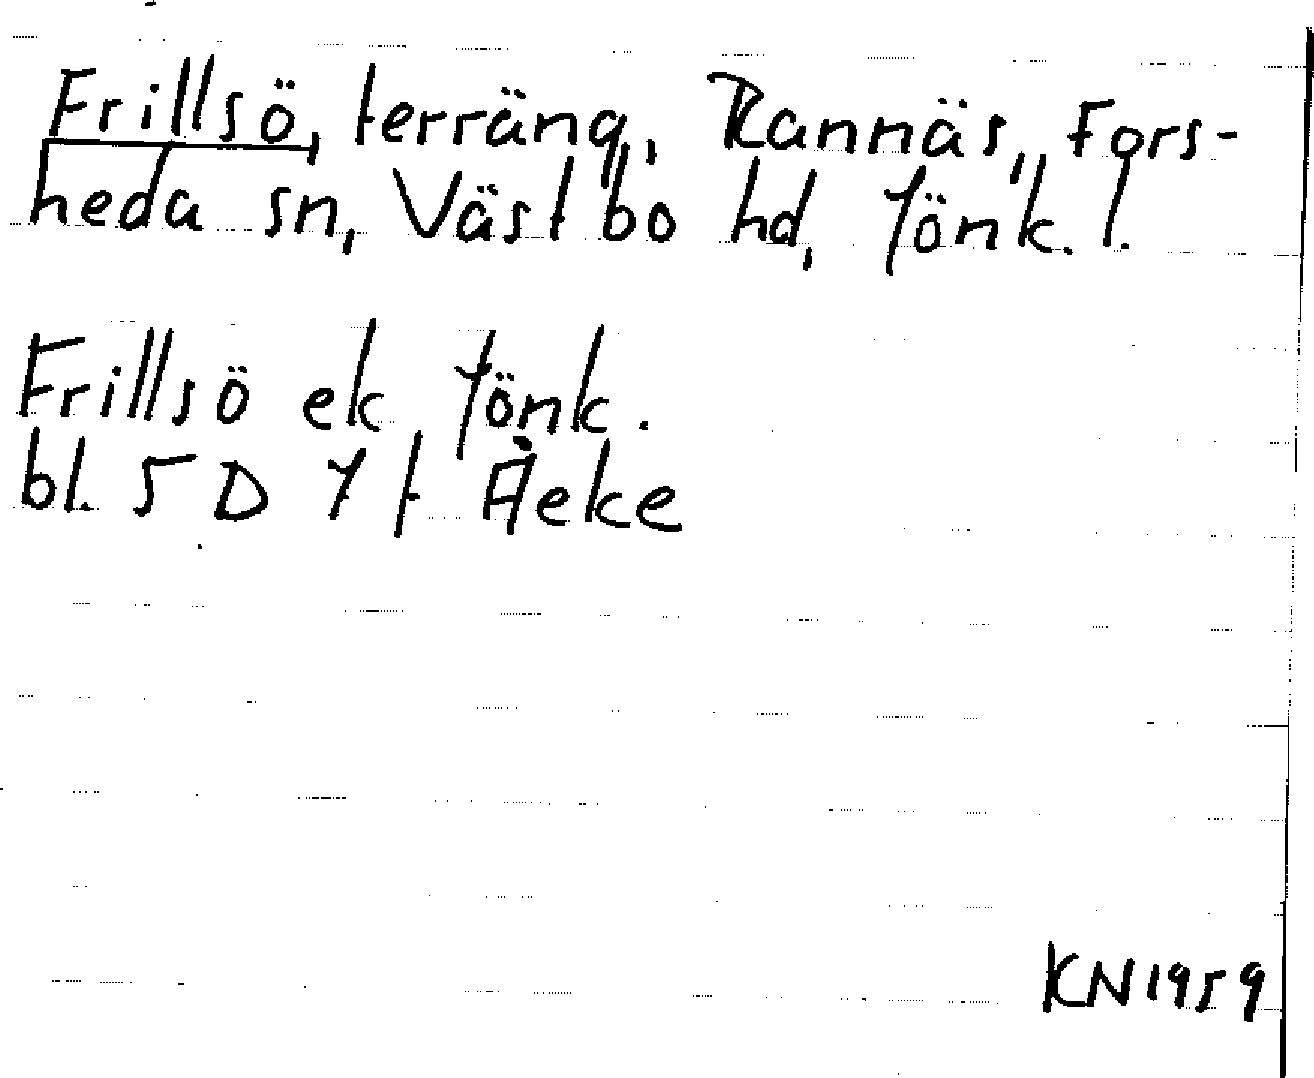 Frillsö, terräng, Rannäs, Fors-
heda sn, Västbo hd, Jönk. l.
Frillsö ek Jönk.
bl. 5 D 7 f Åeke
KN1959